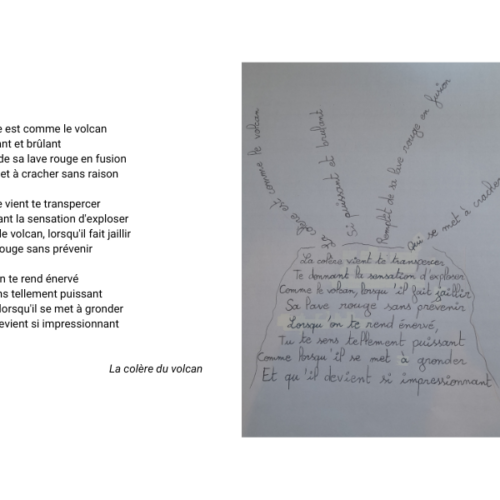 e est comme le volcan
ant et brûlant
de sa lave rouge en fusion
et à cracher sans raison
e vient te transpercer
ant la sensation d'exploser
le volcan, lorsqu'il fait jaillir
ouge sans prévenir
n te rend énervé
ns tellement puissant
lorsqu'il se met à gronder
evient si impressionnant
La colère du volcan
La colère est comme le volcan
Si puissant et brûlant
Remplit de sa lave rouge en fusion
Qui se met à cracher
La colère vient te transpercer
Te donnant la sensation d'exploser
Comme le volcan, lorsqu'il fait jaillir
Sa lave rouge sans prévenir
Lorsqu'on te rend énervé,
Tu te sens tellement puissant
Comme lorsqu'il se met à gronder
Et qu'il devient si impressionnant